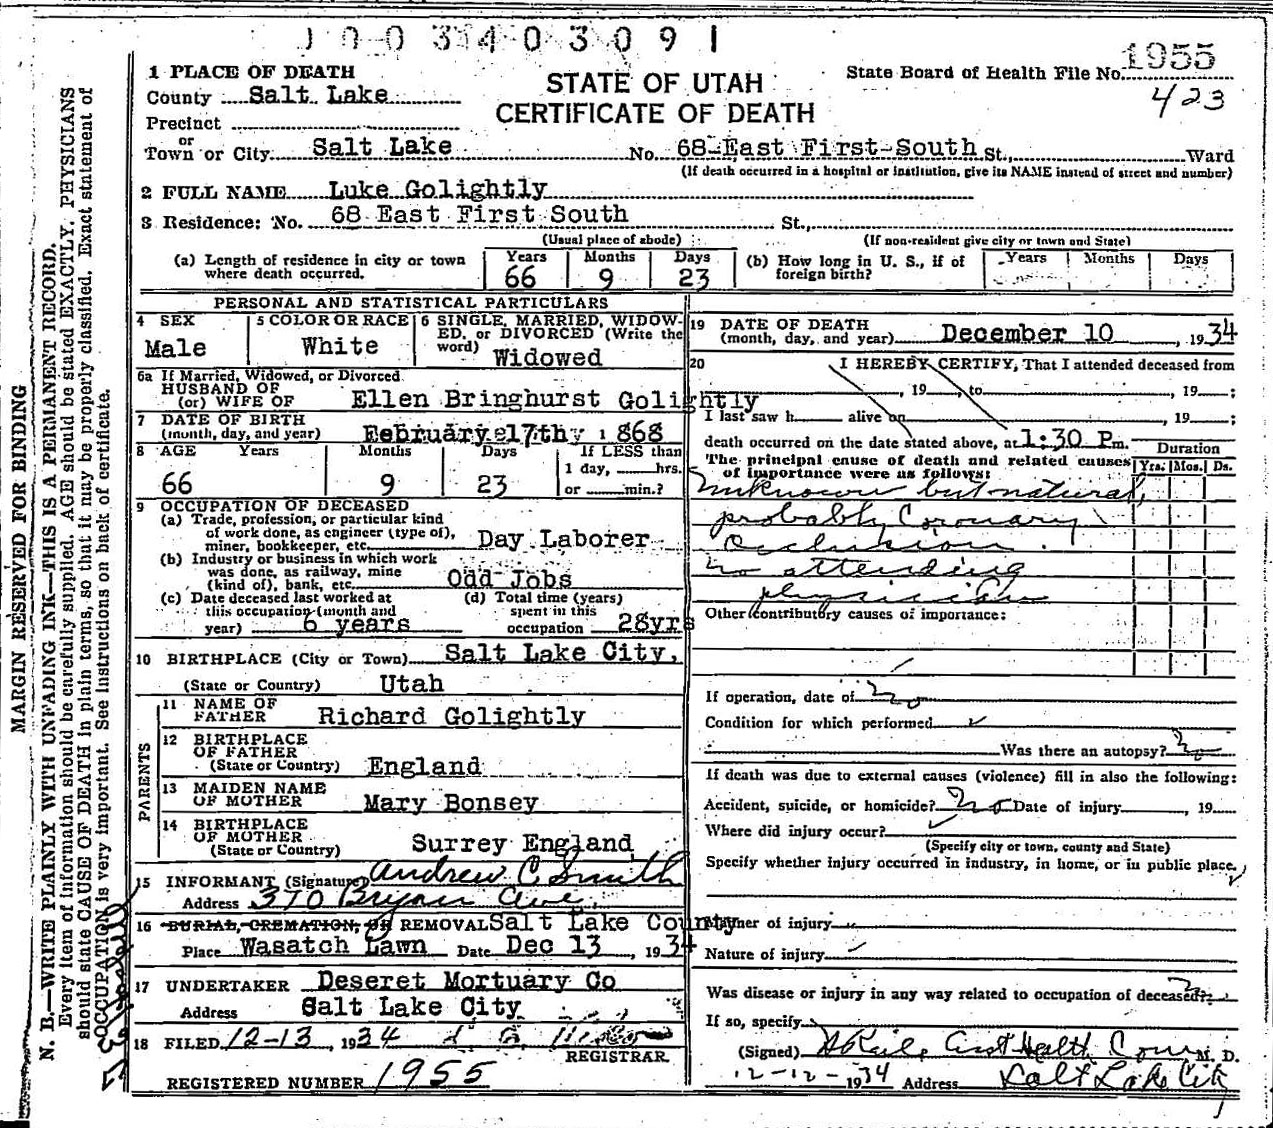 1003403091
1 PLACE OF DEATH
STATE OF UTAH
CERTIFICATE OF DEATH
State Board of Health File No. 1955
423
County Salt Lake
Precinct
or
Town or City Salt Lake No. 68 East First South St., Ward
(If death occurred in a hospital or institution, give its NAME instead of street and number)
2 FULL NAME Luke Golightly
3 Residence: No. 68 East First South St.,
(Usual place of abode) (If non-resident give city or town and State)
(a) Length of residence in city or town where death occurred. Years 66 Months 9 Days 23
(b) How long in U. S., if of foreign birth? Years Months Days
PERSONAL AND STATISTICAL PARTICULARS
4 SEX Male
5 COLOR OR RACE White
6 SINGLE, MARRIED, WIDOWED, or DIVORCED (Write the word) Widowed
6a If Married, Widowed, or Divorced
HUSBAND OF
(or) WIFE OF Ellen Bringhurst Golightly
7 DATE OF BIRTH
(month, day, and year) February 17th 1868
8 AGE Years Months Days If LESS than
1 day, hrs.
66 9 23 or min.?
9 OCCUPATION OF DECEASED
(a) Trade, profession, or particular kind
of work done, as engineer (type of),
miner, bookkeeper, etc. Day Laborer
(b) Industry or business in which work
was done, as railway, mine
(kind of), bank, etc. Odd Jobs
(c) Date deceased last worked at
this occupation (month and
year) 6 years
(d) Total time (years)
spent in this
occupation 28yrs
10 BIRTHPLACE (City or Town) Salt Lake City,
(State or Country) Utah
PARENTS
11 NAME OF
FATHER Richard Golightly
12 BIRTHPLACE
OF FATHER
(State or Country) England
13 MAIDEN NAME
OF MOTHER Mary Bonsey
14 BIRTHPLACE
OF MOTHER
(State or Country) Surrey England
15 INFORMANT (Signature) Andrew C Smith
Address 370 Bryan Ave.
16 BURIAL, CREMATION, OR REMOVAL Salt Lake County
Place Wasatch Lawn Date Dec 13, 1934
17 UNDERTAKER Deseret Mortuary Co
Address Salt Lake City
18 FILED 12-13, 1934
REGISTRAR.
REGISTERED NUMBER 1955
19 DATE OF DEATH
(month, day, and year) December 10, 1934
20 I HEREBY CERTIFY, That I attended deceased from
, 19 , to , 19 ;
I last saw h alive on , 19 ;
death occurred on the date stated above, at 1:30 P m.
The principal cause of death and related causes
of importance were as follows:
Duration
Yrs. Mos. Ds.
unknown but natural,
probably Coronary
occlusion.
no attending
physician
Other contributory causes of importance:
If operation, date of no
Condition for which performed
Was there an autopsy? no
If death was due to external causes (violence) fill in also the following:
Accident, suicide, or homicide? no Date of injury , 19
Where did injury occur?
(Specify city or town, county and State)
Specify whether injury occurred in industry, in home, or in public place,
Manner of injury
Nature of injury
Was disease or injury in any way related to occupation of deceased?
If so, specify
(Signed) Health Com M. D.
12-12-1934 Address Salt Lake City
MARGIN RESERVED FOR BINDING
N. B.—WRITE PLAINLY WITH UNFADING INK—THIS IS A PERMANENT RECORD.
Every item of information should be carefully supplied. AGE should be stated EXACTLY. PHYSICIANS
should state CAUSE OF DEATH in plain terms, so that it may be properly classified. Exact statement of
OCCUPATION is very important. See instructions on back of certificate.